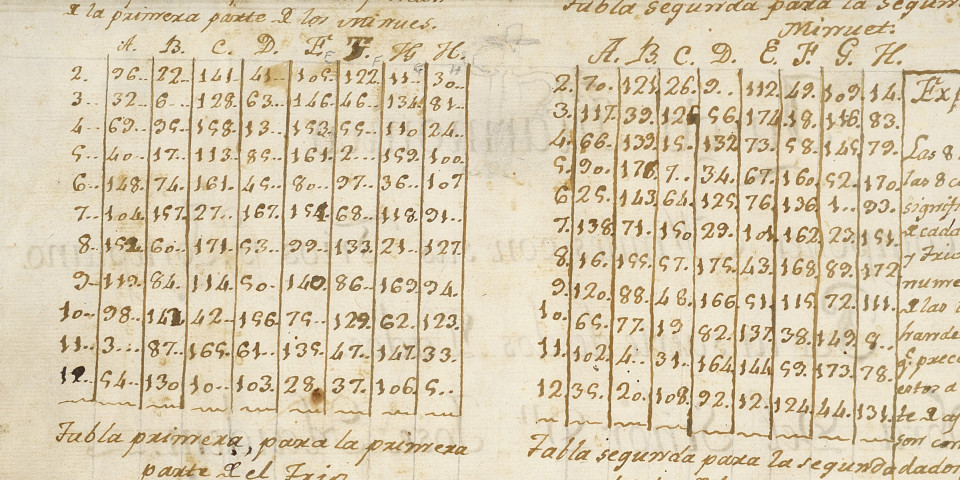 a la primera parte de los minues.
A. B. C. D. E. F. H. H.
2. 96.. 22.. 141.. 41.. 105.. 122 11.. 30..
3.. 32.. 6.. 128. 63.. 146.. 46.. 134. 81..
4.. 69.. 95.. 158.. 13.. 153. 55.. 110 24..
5.. 40.. 17.. 113. 85.. 161. 2... 159. 100.
6.. 148. 74.. 161. 45.. 80.. 97.. 36.. 107
7.. 104. 157. 27.. 167. 154 68.. 118. 91..
8.. 152. 60.. 171. 53.. 99.. 133. 21.. 127
9.. 119. 84.. 114. 50.. 140. 86.. 169. 94.
10.. 98.. 142 42.. 156. 75.. 129. 62.. 123.
11.. 3... 87.. 165. 61.. 135. 47.. 147. 33.
12.. 54.. 130 10.. 103. 28. 37. 106. 5..
Tabla primera, para la primera
parte de el Trio
Tabla segunda para la segun
Minuet.
A. B. C. D. E. F. G. H.
2. 70. 121. 26. 9.. 112. 49. 109. 14.
3. 117. 39. 126 56. 174. 18. 116. 83.
4. 66. 139. 15. 132 73. 58. 145. 79.
5. 90. 176. 7.. 34. 67. 160. 52. 170.
6 25. 143. 64. 125. 76. 136. 1.. 93.
7. 138. 71. 150 29. 101. 162. 23. 151.
8. 16. 155. 57. 175. 43. 168. 89. 172
9. 120. 88. 48. 166. 51. 115. 72. 111.
10. 65. 77. 19 82. 137. 38. 149. 8..
11. 102. 4.. 31. 164. 144 59. 173. 78.
12. 35. 20. 108. 92. 12. 124. 44. 131.
Tabla segunda para la segunda
Exp
Las 8.
las 8 c
signifi
a cada
y trio
nume
a las
han de
q. prec
son con
dador